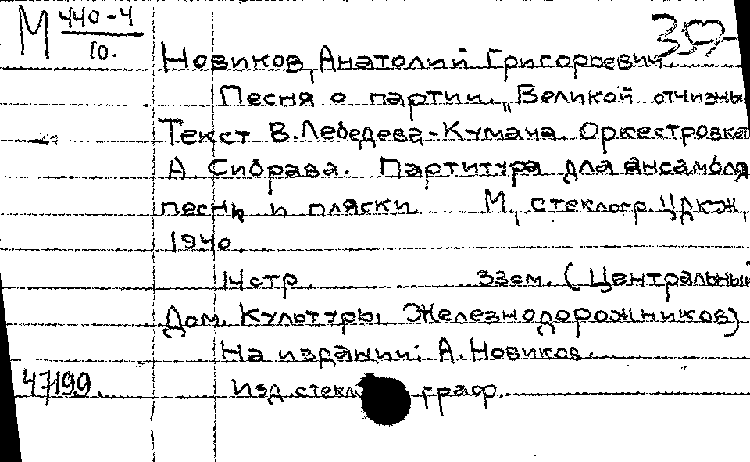 М 440-4
10.
Новиков, Анатолий Григорьевич.
Песня о партии. "Великой отчизны
Текст В. Лебедева-Кумача. Оркестровка
А Сибрава. Партитура для ансамбля
песни и пляски М, стеклогр. ЦДКЖ,
1940.
14стр. 33см. (Центральный
Дом Культуры Железнодорожников)
На издании: А. Новиков.
47199. Изд стекл граф.